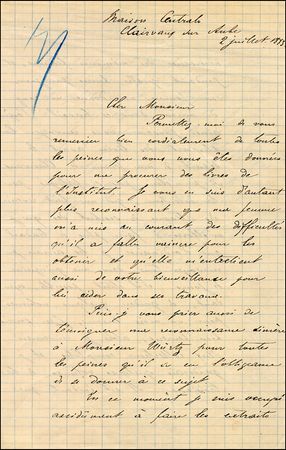 Maison Centrale
Clairvaux sur Aube
2 juillet 1883
Cher Monsieur
Permettez-moi de vous
remercier bien cordialement de toutes
les peines que vous vous êtes données
pour me procurer des livres de
l'Institut. Je vous en suis d'autant
plus reconnaissant que ma femme
m'a mis au courant des difficultés
qu'il a fallu vaincre pour les
obtenir et qu'elle m'entretient
aussi de votre bienveillance pour
lui aider dans ses travaux.
Puis-je vous prier aussi de
témoigner ma reconnaissance sincère
à Monsieur Wurtz pour toutes
les peines qu'il a eu l'obligeance
de se donner à ce sujet
En ce moment je suis occupé
assidûment à faire les extraits